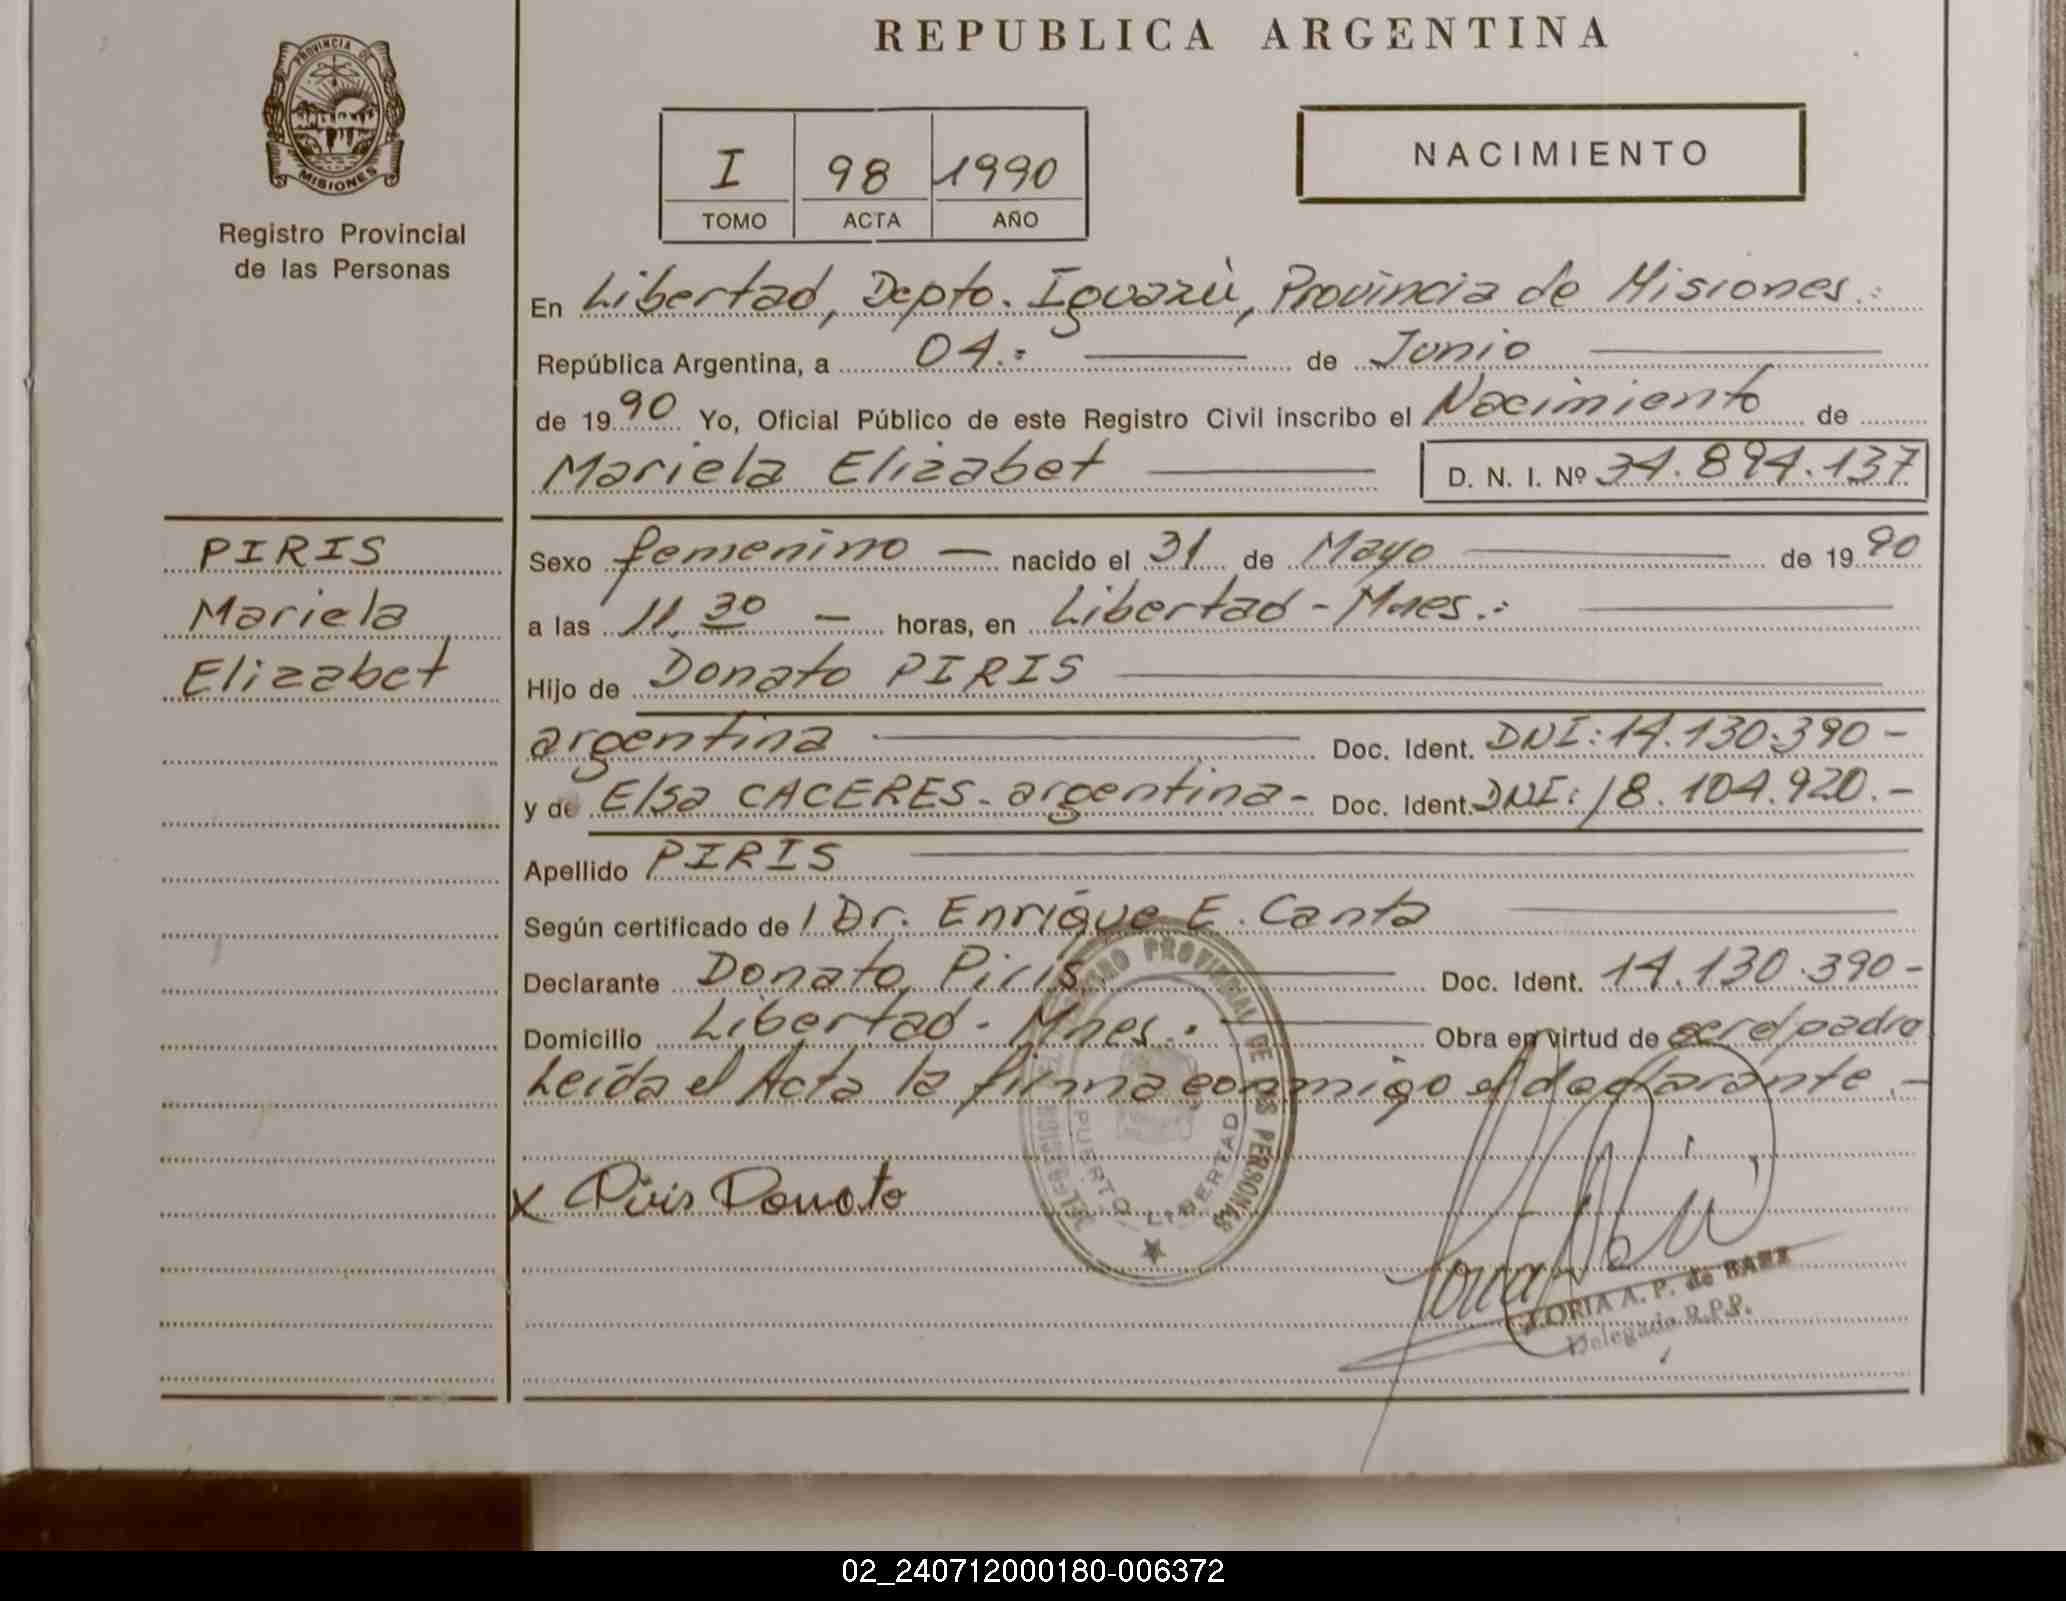 REPUBLICA ARGENTINA
PROVINCIA DE
MISIONES
Registro Provincial
de las Personas
I 98 1990
TOMO ACTA AÑO
NACIMIENTO
En Libertad, Depto. Iguazú, Provincia de Misiones.:
República Argentina, a 04.- de Junio
de 1990 Yo, Oficial Público de este Registro Civil inscribo el Nacimiento de
Mariela Elizabet D. N. I. Nº 34.894.137
PIRIS
Mariela
Elizabet
Sexo femenino — nacido el 31 de Mayo de 1990
a las 11,30 — horas, en Libertad - Mnes.:
Hijo de Donato PIRIS
argentina Doc. Ident. DNI: 14.130.390-
y de Elsa CACERES - argentina - Doc. Ident. DNI: 18.104.920.-
Apellido PIRIS
Según certificado de / Dr. Enrique E. Canta
Declarante Donato Piris Doc. Ident. 14.130.390-
Domicilio Libertad - Mnes. Obra en virtud de ser el padre
Leída el Acta la firma conmigo el declarante.-
x Piris Donato
PROVINCIAL DE LAS PERSONAS
PUERTO LIBERTAD
A. P. de BAEZ
Delegada R.P.P.
02_240712000180-006372